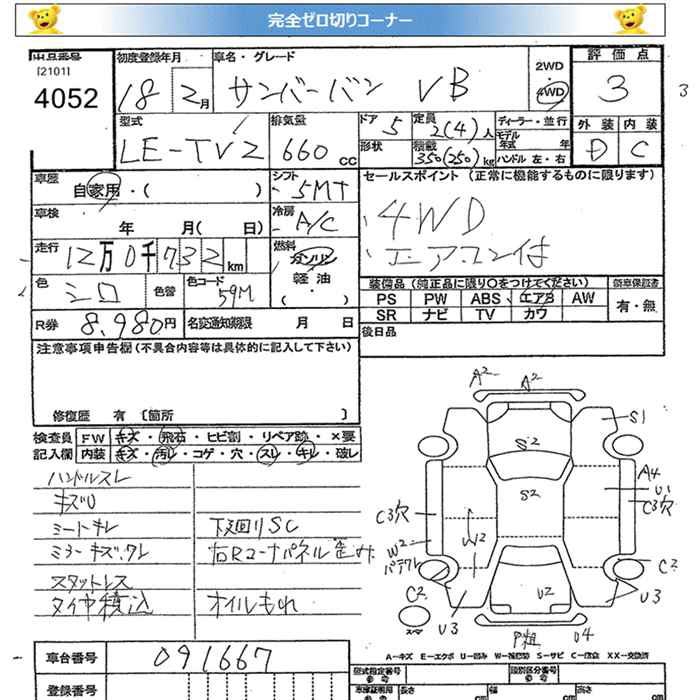 完全ゼロ切りコーナー
出品番号
[2101]
4052
初度登録年月
18 2月
車名・グレード
サンバーバン VB
2WD
4WD
評価点
3
3
外装 内装
D C
型式
LE-TV2
排気量
660 cc
ドア
5
形状
定員
2(4)人
積載
350(250)kg
ディーラー・並行
モデル
年式 年
ハンドル 左・右
車歴
自家用・( )
シフト
5MT
セールスポイント (正常に機能するものに限ります)
・4WD
・エアコン付
車検
年 月( 日)
冷房
A/C
走行
12万0千732 km
燃料
ガソリン
軽油
・( )
色
シロ
色替
色コード
59M
装備品 (純正品に限り○をつけてください)
PS PW ABS エアB AW
SR ナビ TV カワ
新車保証書
有・無
R券 8,980円
名変通知期限 月 日
後日品
注意事項申告欄 (不具合内容等は具体的に記入して下さい)
修復歴 有 [箇所 ]
検査員 FW キズ・飛石・ヒビ割・リペア跡・×要
記入欄 内装 キズ・汚レ・コゲ・穴・スレ・キレ・破レ
ハンドルスレ
キズU
ミートキレ 下廻りSC
ミラーキズ、ワレ 右Rコーナパネル歪み
スタットレス
タイヤ積込 オイルもれ
A2 A2
S1
S2
S2
A4
U1
C3穴
C3穴
W2
W2
パテワレ
C2
U3
C2
スペア
U3
U2
P粗 U4
A-キズ E-エクボ U-凹み W-補修跡 S-サビ C-腐食 XX-交換済
車台番号 091667
登録番号
型式指定番号
参考
類別区分番号
参考
車庫証明用
参考
長さ cm
幅 cm
高さ cm